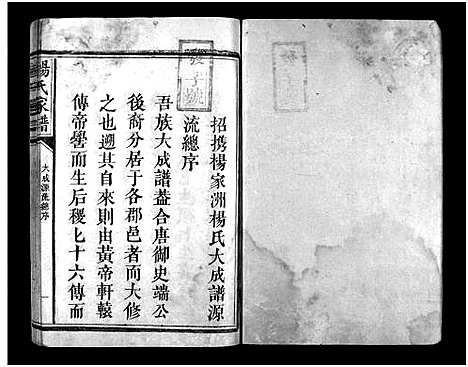 招携楊家洲楊氏大成譜源
流總序
吾族大成譜葢合唐御史端公
後裔分居于各郡邑者而大修
之也遡其自來則由黄帝軒轅
傳帝嚳而生后稷七十六傳而
楊氏家譜
大成源流總序